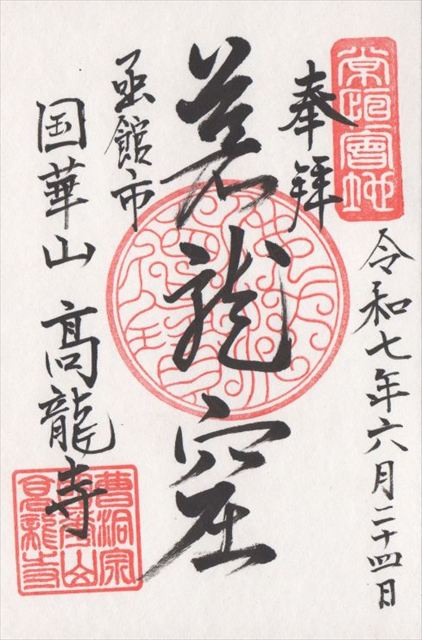 奉拝
令和七年六月二十四日
蒼龍窟
函館市
国華山 高龍寺
曹洞宗
国華山
高龍寺